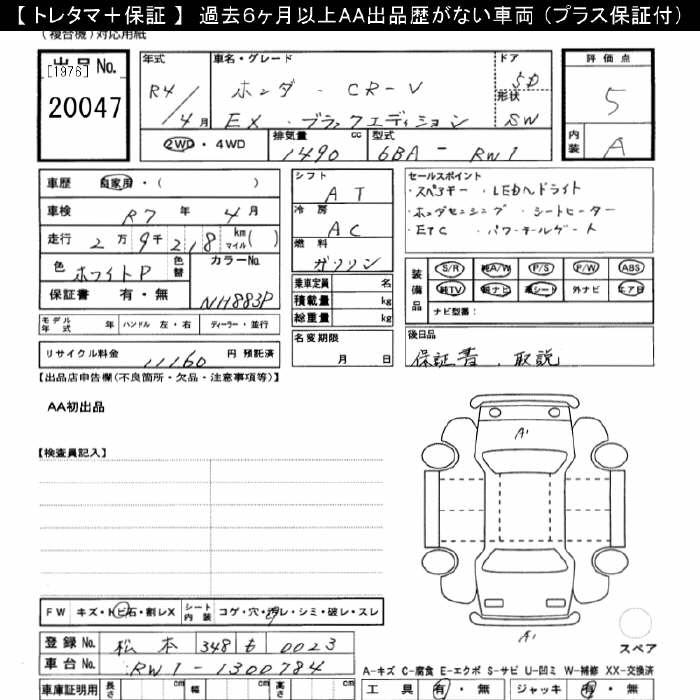 【 トレタマ＋保証 】 過去６ヶ月以上AA出品歴がない車両 （プラス保証付）
（複合機）対応用紙
出品No.
[1976]
20047
年式
R4/4月
車名・グレード
ホンダ CR-V
EX・ブラックエディション
ドア
5D
形状
SW
2WD・4WD
排気量
1490 cc
型式
6BA-RW1
評価点
5
内装
A
車歴 自家用・( )
車検 R7 年 4 月
走行 2万 9千 218 km マイル( )
色 ホワイトP 色替
カラーNo. NH883P
保証書 有・無
モデル年式 年 ハンドル 左・右 ディーラー・並行
リサイクル料金 11160 円 預託済
シフト
AT
冷房
AC
燃料
ガソリン
乗車定員 名
積載量 kg
総重量 kg
名変期限
月 日
セールスポイント
・スペアキー ・LEDヘッドライト
・ホンダセンシング ・シートヒーター
・ETC ・パワーテールゲート
装備品
S/R 純A/W P/S P/W ABS
純TV 純ナビ 革シート 外ナビ エアB
ナビ型番：
後日品
保証書、取説
【出品店申告欄(不良箇所・欠品・注意事項等)】
AA初出品
【検査員記入】
A1
A1
スペア
FW キズ・トビ石・割レX シート内装 コゲ・穴・切レ・シミ・破レ・スレ
登録No. 松本 348 も 0023
車台No. RW1-1300784
A-キズ C-腐食 E-エクボ S-サビ U-凹ミ W-補修 XX-交換済
車庫証明用 長さ cm 幅 cm 高さ cm
工具 有・無 ジャッキ 有・無